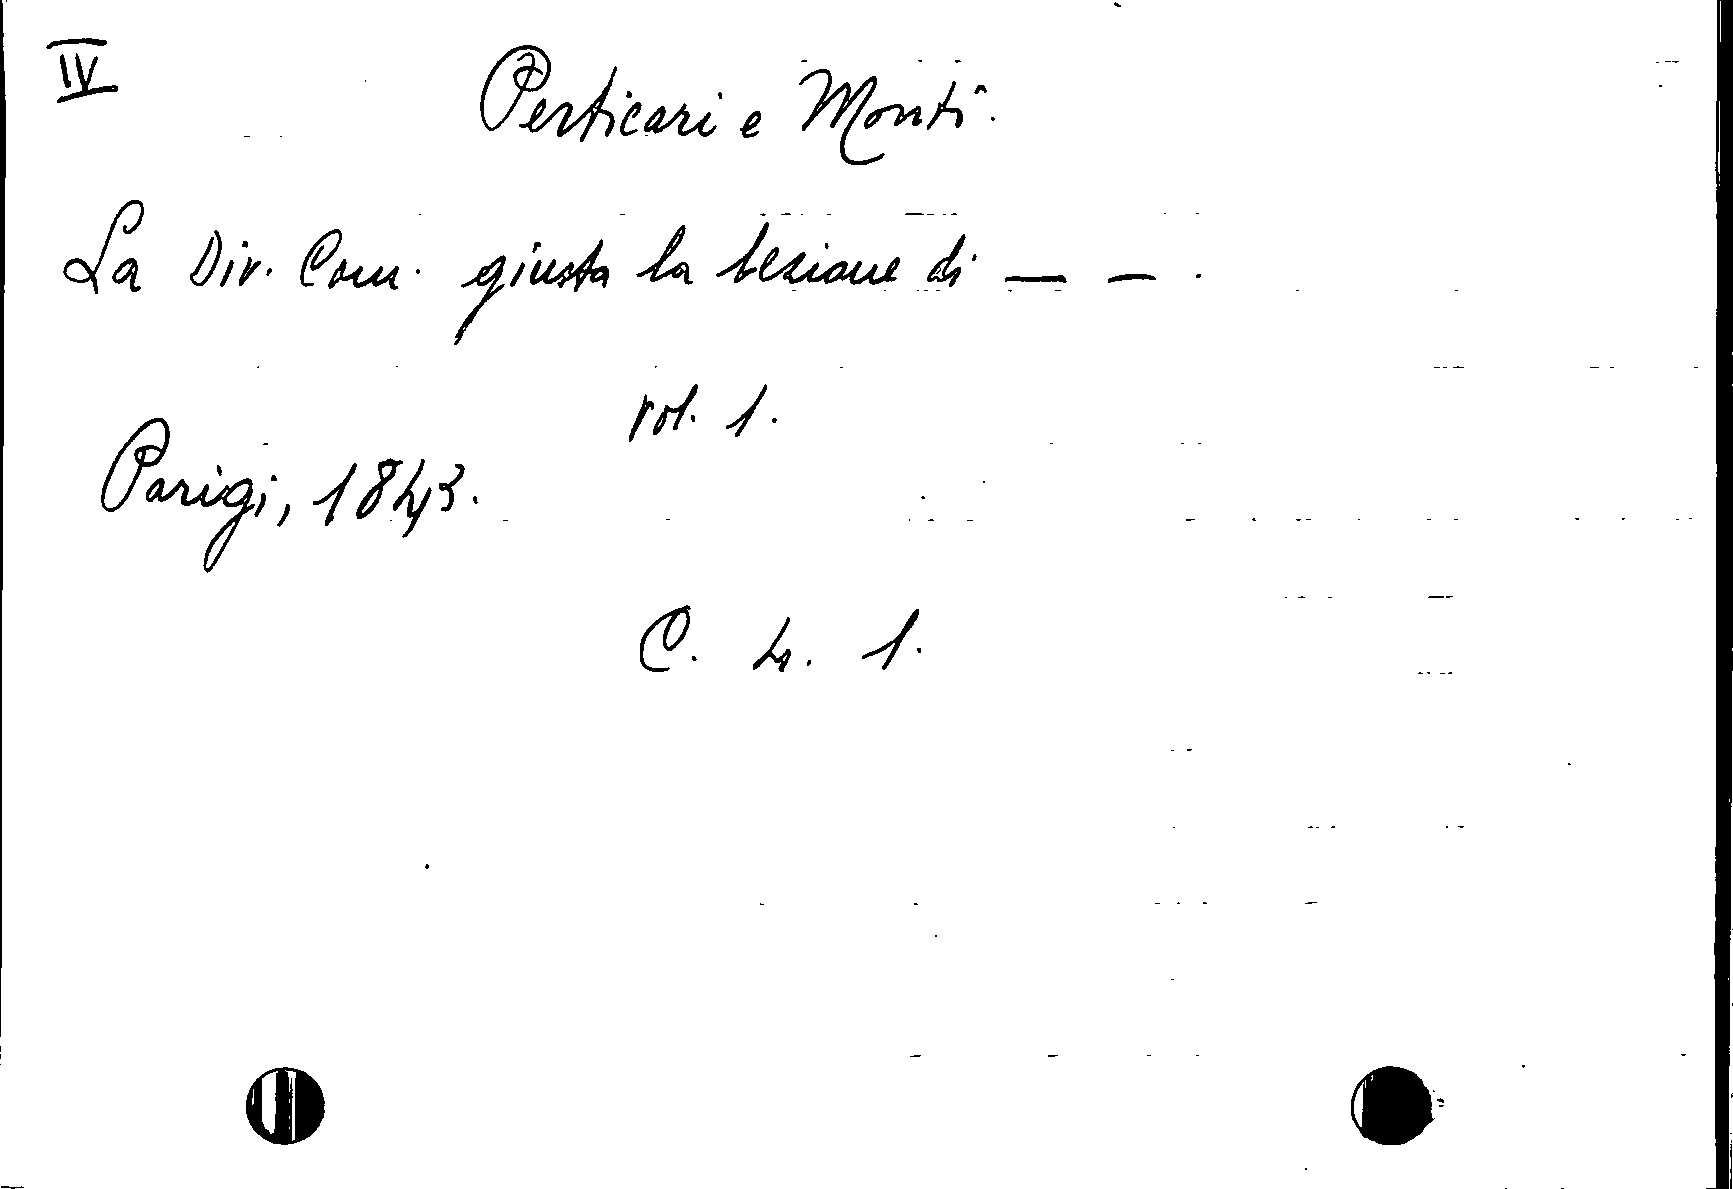 IV
Perticari e Monti.
La Div. Com. giusta la lezione di — — .
vol. 1.
Parigi, 1843.
C. 4. 1.